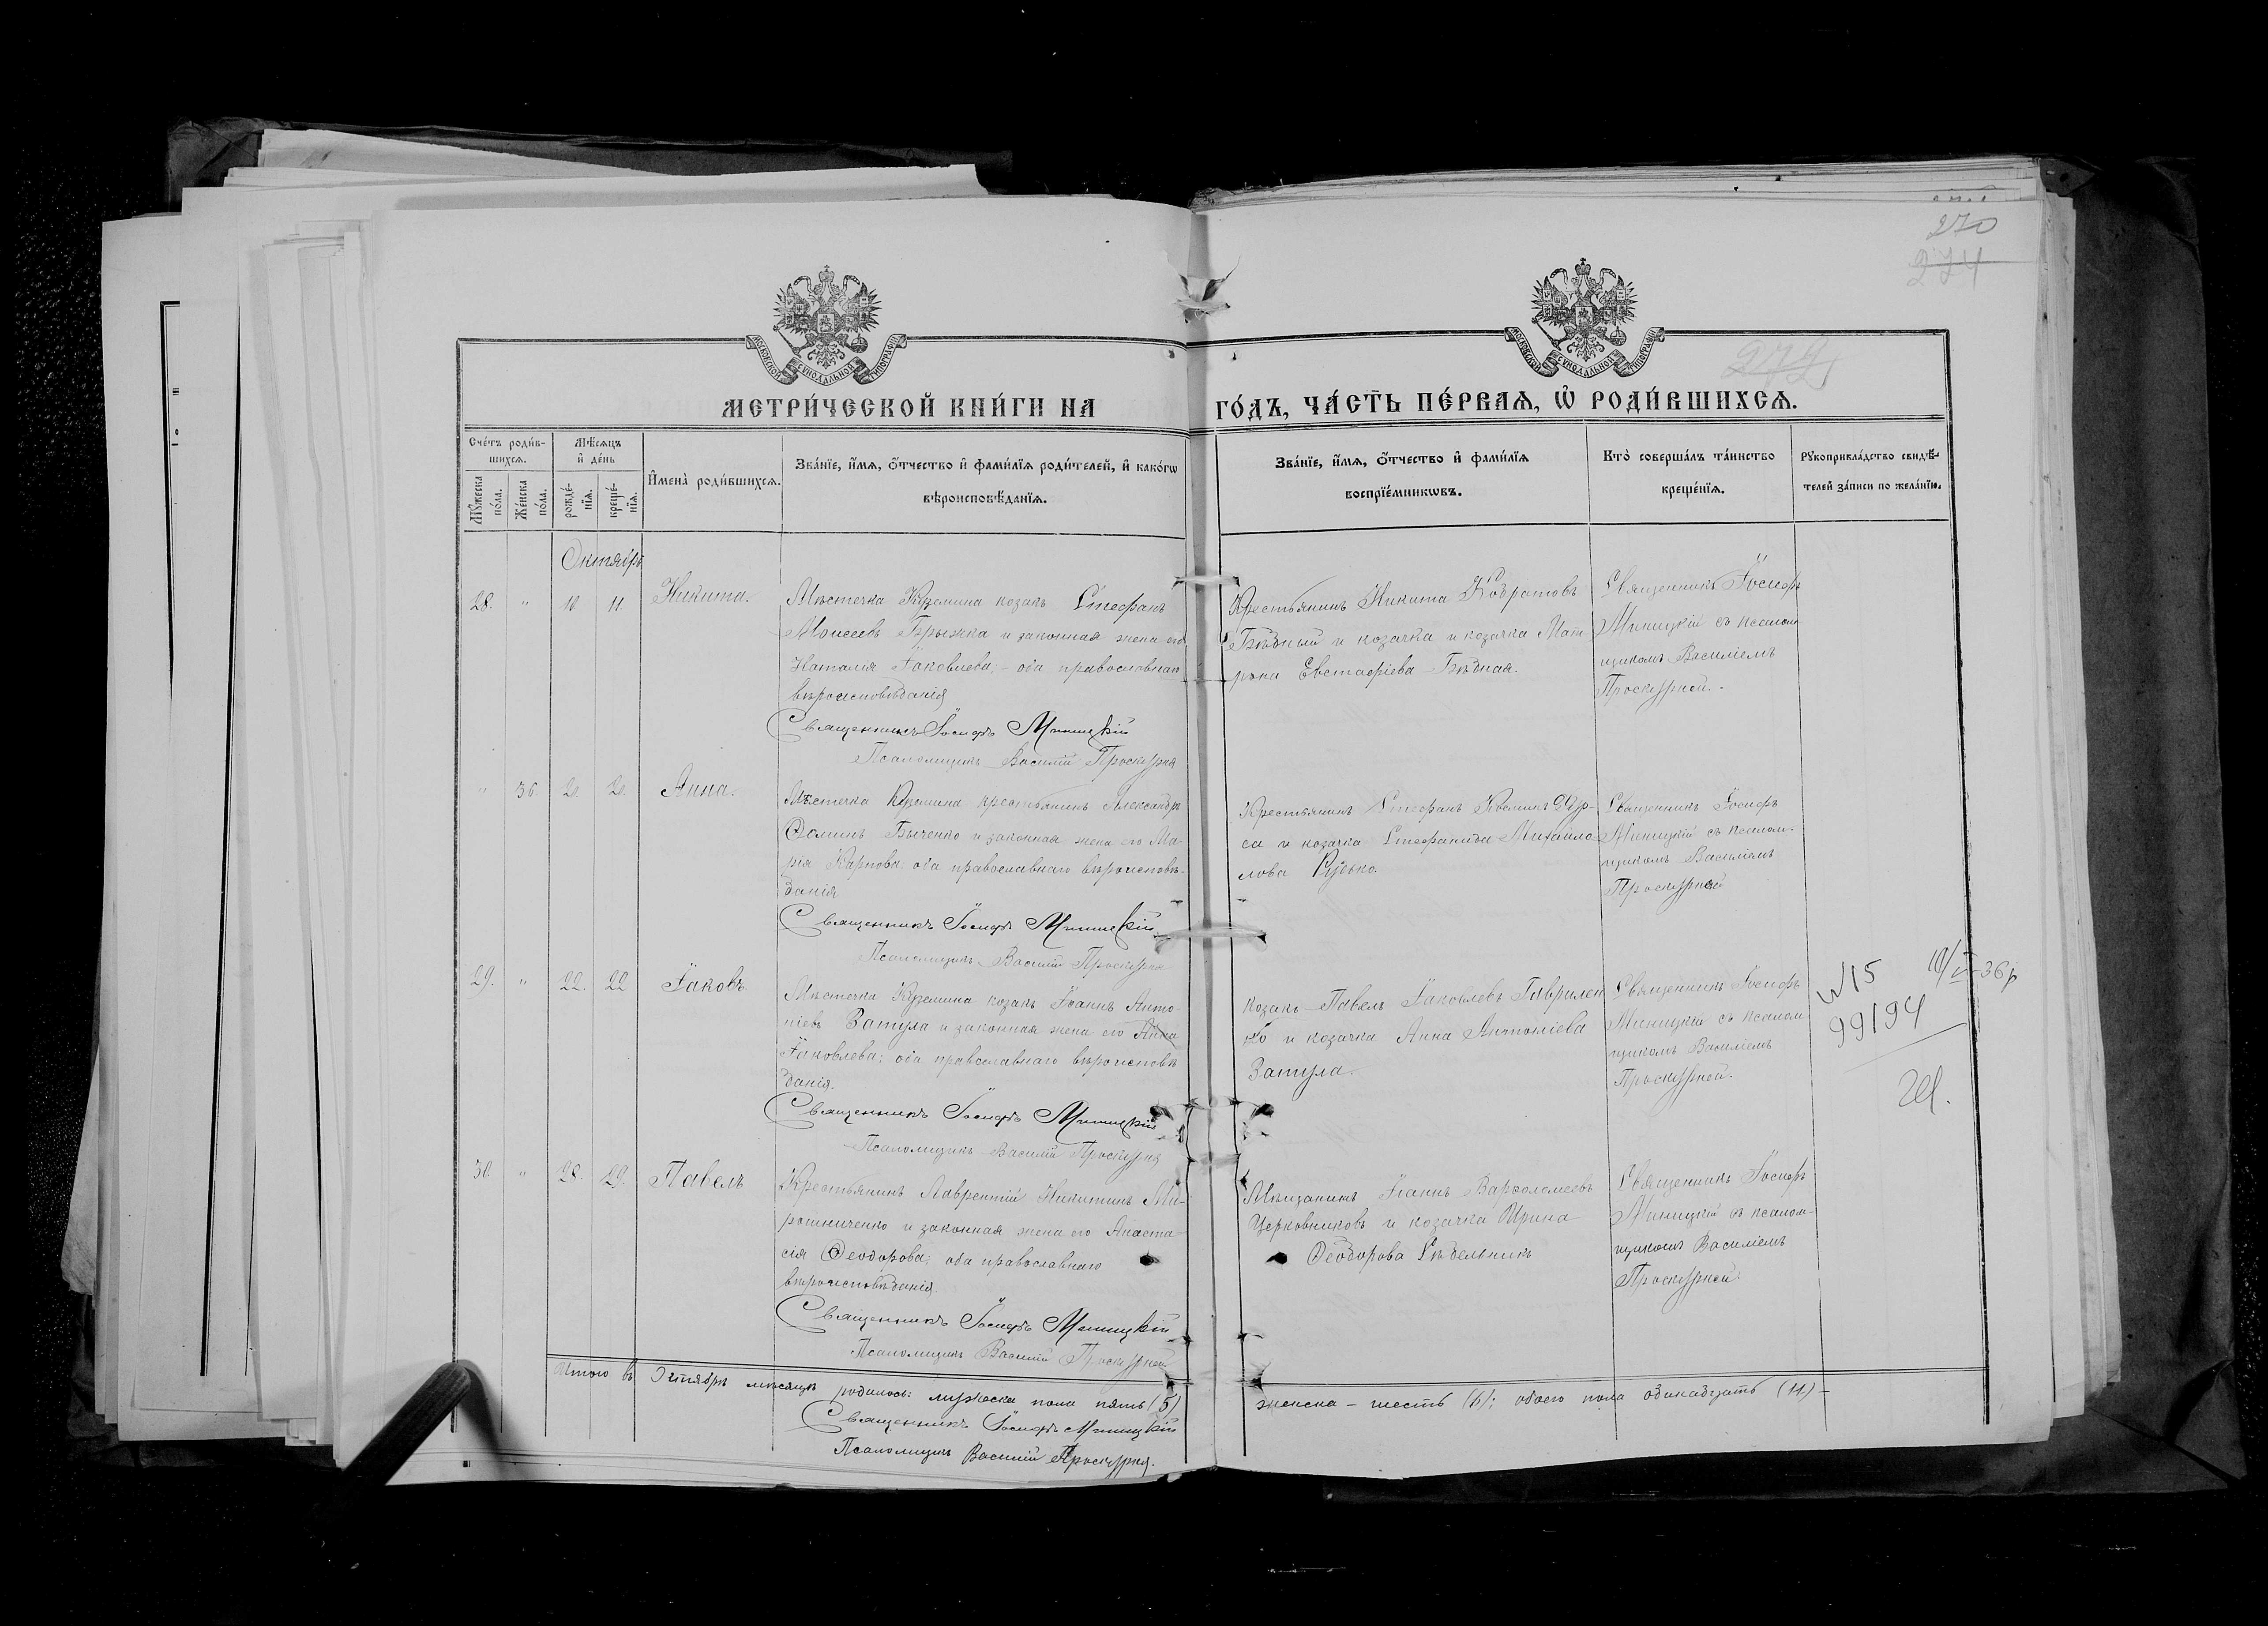 270
274
272
МОСКОВСКОЙ СѴНОДАЛЬНОЙ ТИПОГРАФІИ
МОСКОВСКОЙ СѴНОДАЛЬНОЙ ТИПОГРАФІИ
МЕТРИ́ЧЕСКОЙ КНИ́ГИ НА ГО́ДЪ, ЧА́СТЬ ПЕ́РВАЯ, Ѡ РОДИ́ВШИХСЯ.
Сче́тъ роди́в-
шихся.
Мꙋ́жеска по́ла.
Же́нска по́ла.
Мѣ́сяцъ и де́нь
рожде́-
нїя.
креще́-
нїя.
Имена̀ роди́вшихся.
Зва́нїе, и́мя, о́тчество и фами́лїя роди́телей, и како́гѡ
вѣроисповѣ́данїя.
Зва́нїе, и́мя, о́тчество и фами́лїя
воспрїе́мникѡвъ.
Кто̀ соверша́лъ та́инство
креще́нїя.
Рꙋкоприкла́дство свидѣ́-
телей за́писи по жела́нїю.
Октябрь
28. " 10 11 Никита.
Мѣстечка Куземина козакъ Стефанъ
Моисеевъ Брыжка и законная жена его
Наталія Іаковлева; оба православнаго
вѣроисповѣданія
Священникъ Іосифъ Миницкій
Псаломщикъ Василій Проскурня
Крестьянинъ Никита Кодратовъ
Бѣдный и козачка и козачка Мат
рона Евстафіева Бѣдная.
Священникъ Іосифъ
Миницкій съ псалом
щикомъ Василіемъ
Проскурней.
" 36 20. 20. Анна.
Мѣстечка Куземина крестьянинъ Александръ
Ѳоминъ Быченко и законная жена его Ма-
рія Карпова оба православнаго вѣроисповѣ-
данія
Священникъ Іосифъ Миницкій
Псаломщикъ Василій Проскурня
Крестьянинъ Стефанъ Косминъ
са и козачка Стефанида Михайло
лова Рудько.
Священникъ Іосифъ
Миницкій съ псалом-
щикомъ Василіемъ
Проскурней
29. " 22. 22 Іаковъ
Мѣстечка Куземина козакъ Іоаннъ Анто-
ніевъ Затула и законная жена его Анна
Іаковлева; оба православнаго вѣроисповѣ
данія.
Священникъ Іосифъ Миницкій
Псаломщикъ Василій Проскурня
Козакъ Павелъ Іаковлевъ Гаврилен
ко и козачка Анна Антоніева
Затула.
Священникъ Іосифъ
Миницкій съ псалом
щикомъ Василіемъ
Проскурней.
99194
30. " 28. 29. Павелъ
Крестьянинъ Лаврентій Никитинъ Ми-
рошниченко и законная жена его Анаста
сія Ѳеодорова; оба православнаго
вѣроисповѣданія.
Священникъ Іосифъ Миницкій
Псаломщикъ Василій Проскурней
Мѣщанинъ Іоаннъ Варфоломеевъ
Церковниковъ и козачка Ирина
Ѳеодорова Сѣдельникъ
Священникъ Іосифъ
Миницкій съ псалом-
щикомъ Василіемъ
Проскурней.
Итого въ Октябрѣ мѣсяцѣ родилось: мужеска пола пять (5)
женска – шесть (6); обоего пола одинадцать (11) –
Священникъ Іосифъ Миницкій
Псаломщикъ Василій Проскурня.